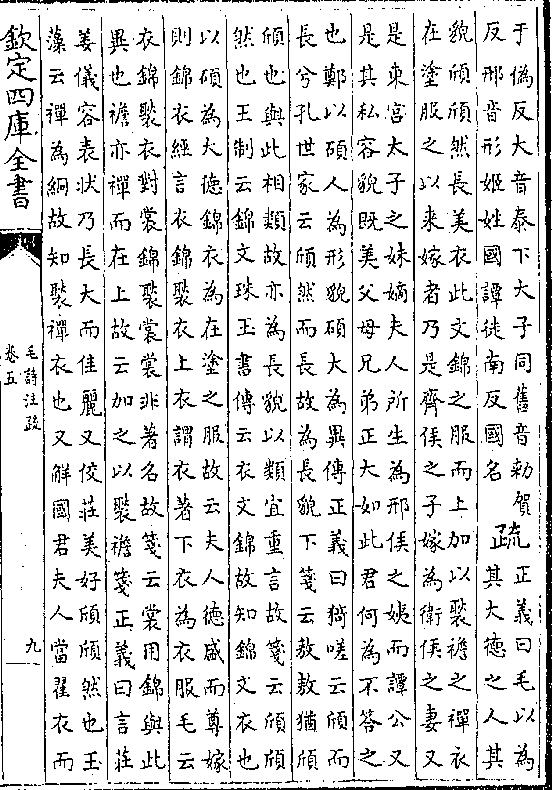 于僞反大音泰下大子同舊音勅賀
反邢音形姬姓國譚徒南反國名 疏 正義曰毛以為其大德之人其
貌頎頎然長美衣此文錦之服而上加以褧襜之襌衣
在塗服之以來嫁者乃是齊侯之子嫁為衛侯之妻又
是東宮太子之妹嫡夫人所生為邢侯之姨而譚公又
是其私容貌既美父母兄弟正大如此君何為不答之
也鄭以碩人為形貌碩大為異傳正義曰猗嗟云頎而
長兮孔世家云頎然而長故為長貌下箋云敖敖猶頎
頎也與此相類故亦為長貌以類宜重言故箋云頎頎
然也王制云錦文珠玉書傳云衣文錦故知錦文衣也
以碩為大德錦衣為在塗之服故云夫人德盛而尊嫁
則錦衣經言衣錦褧衣上衣謂衣著下衣為衣服毛云
衣錦褧衣對裳錦褧裳裳非著名故箋云裳用錦與此
異也襜亦襌而在上故云加之以褧襜箋正義曰言莊
姜儀容表狀乃長大而佳麗又佼莊美好頎頎然也玉
藻云襌為絅故知褧襌衣也又解國君夫人當翟衣而
欽定四庫全書
毛詩注疏
卷五
九